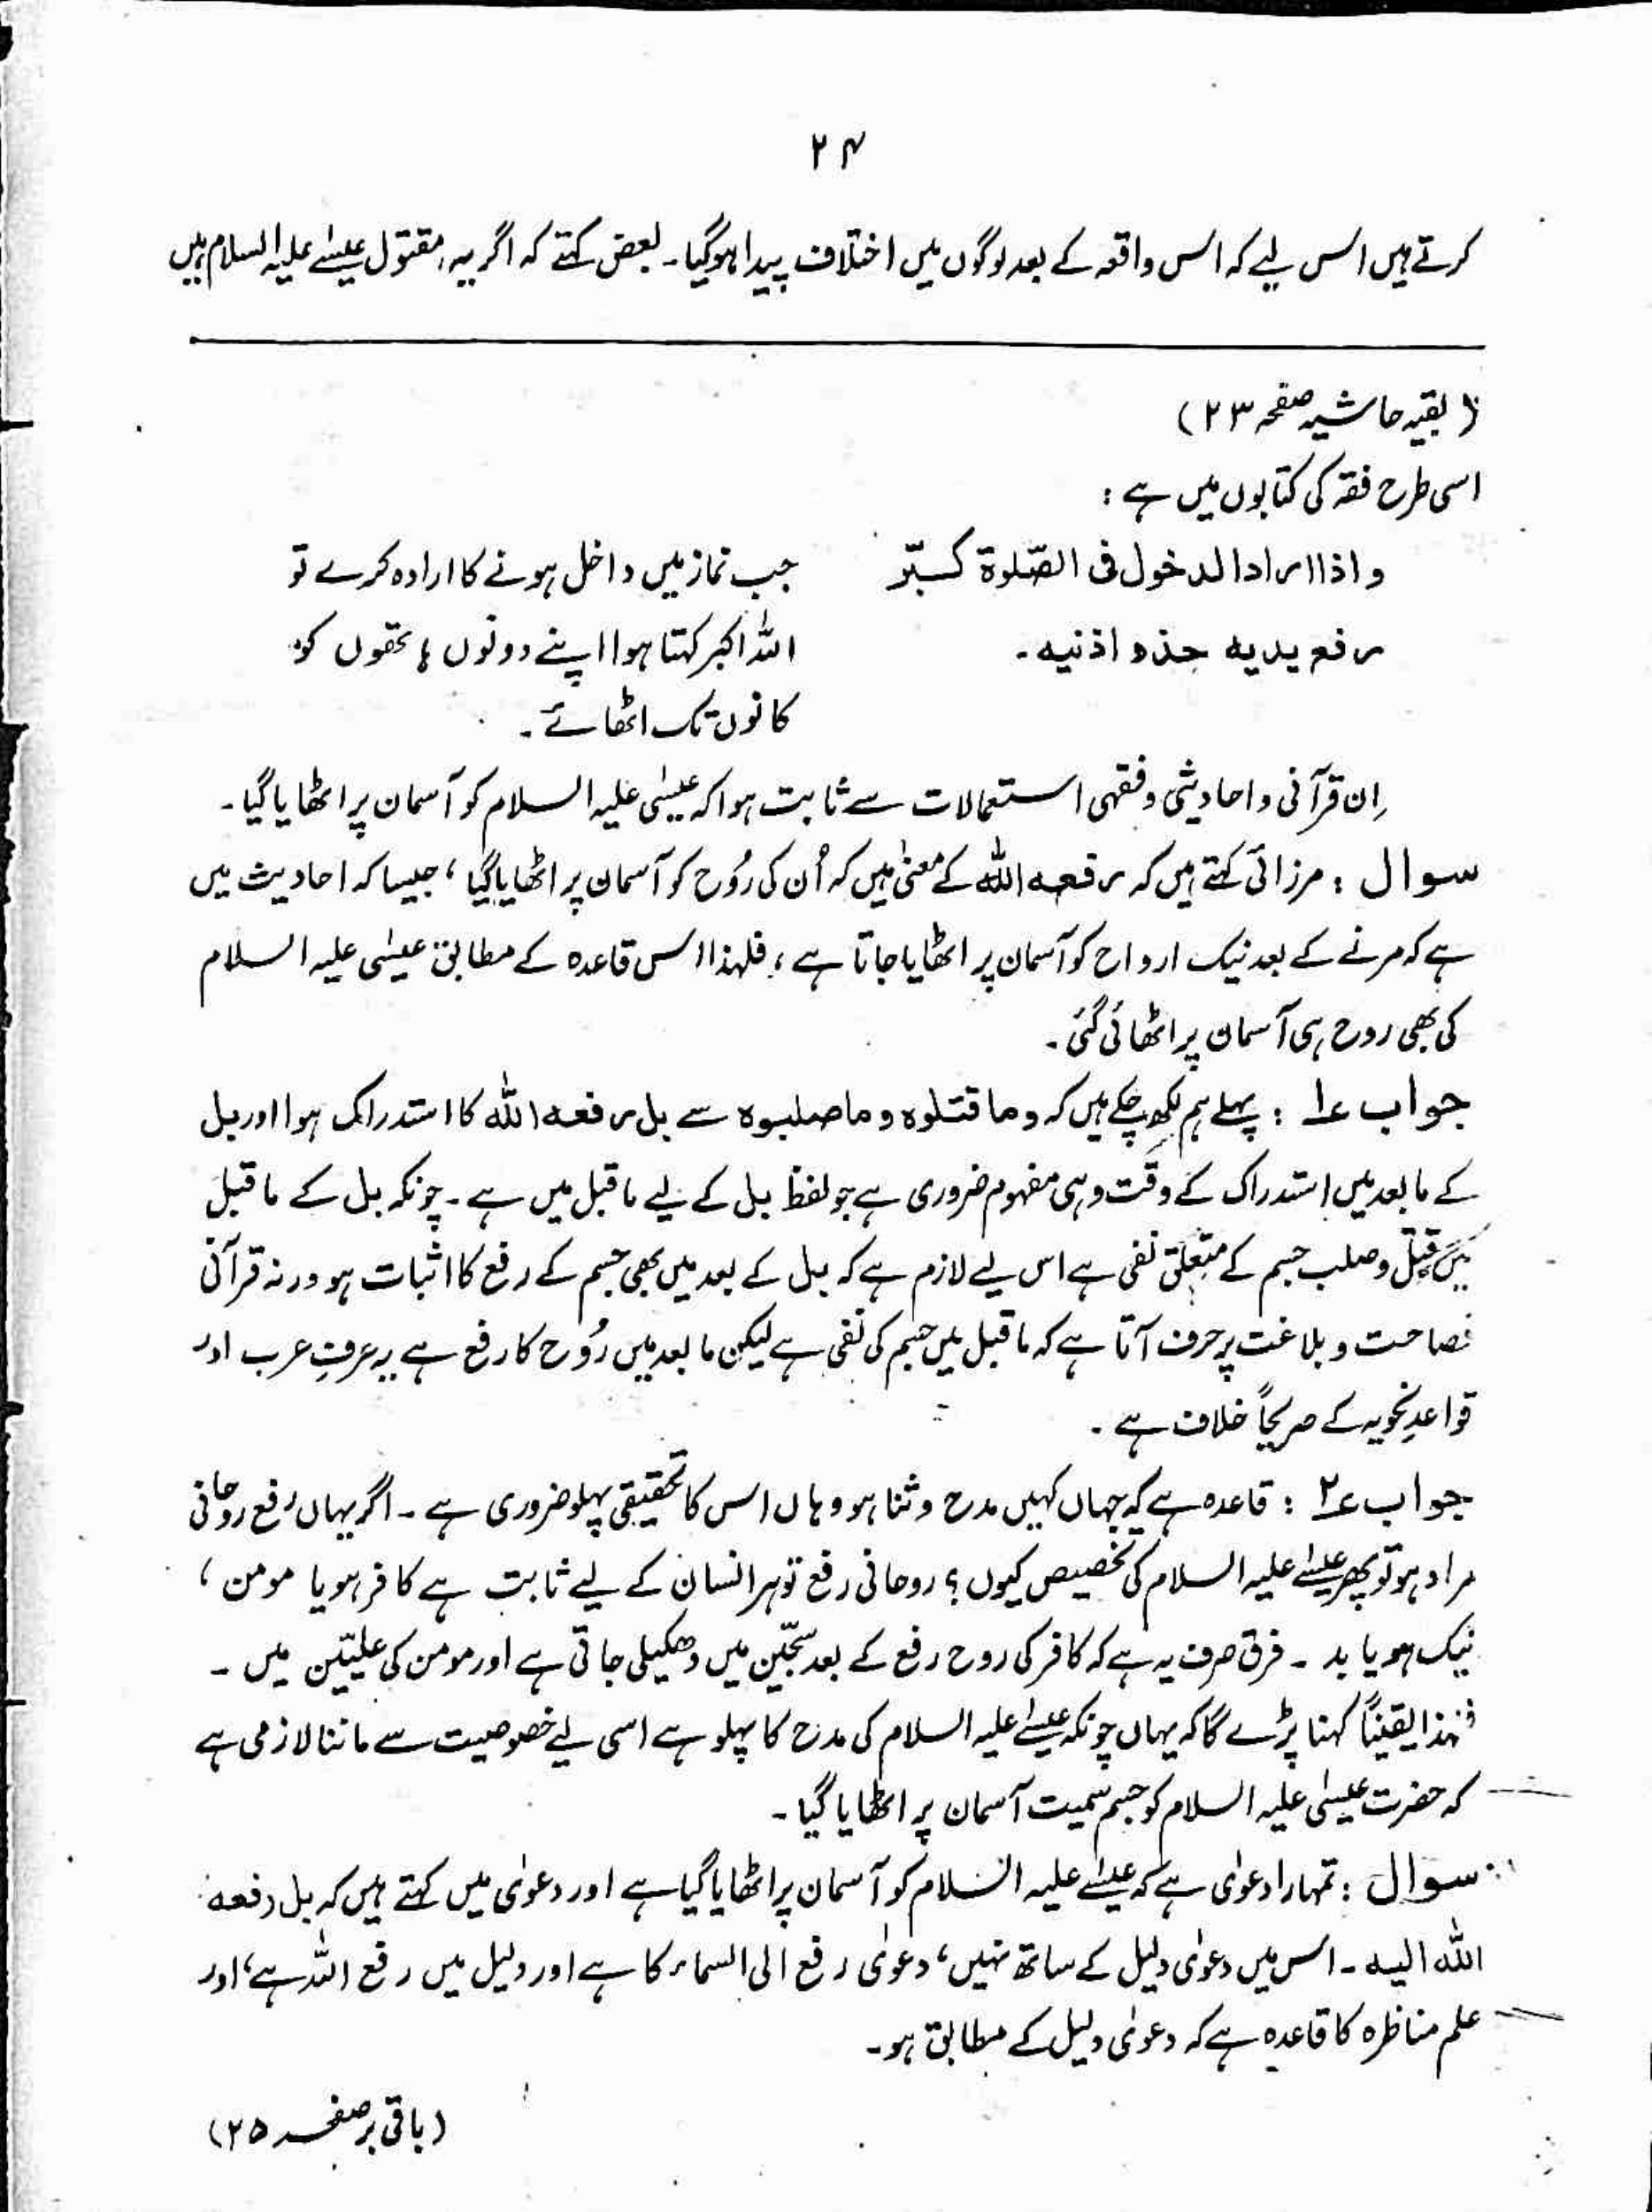 ۲۴
کرتے ہیں اس لیے کہ اس واقعہ کے بعد لوگوں میں اختلاف پیدا ہوگیا۔ بعض کہتے کہ اگر یہ مقتول عیسٰے علیہ السلام ہیں
(بقیہ حاشیہ صفحہ ۲۳)
اسی طرح فقہ کی کتابوں میں ہے :
و اذا اراد الدخول فی الصّلوة کبّر
رفع یدیه حذو اذنیه۔
جب نماز میں داخل ہونے کا ارادہ کرے تو
اللہ اکبر کہتا ہوا اپنے دونوں ہاتھوں کو
کانوں تک اٹھائے۔
اِن قرآنی و احادیثی و فقہی استعمالات سے ثابت ہوا کہ عیسٰی علیہ السلام کو آسمان پر اٹھایا گیا۔
سوال : مرزائی کہتے ہیں کہ رفعہ اللہ کے معنٰی ہیں کہ اُن کی رُوح کو آسمان پر اٹھایا گیا، جیسا کہ احادیث میں
ہے کہ مرنے کے بعد نیک ارواح کو آسمان پر اٹھایا جاتا ہے، فلہٰذا اس قاعدہ کے مطابق عیسٰی علیہ السلام
کی بھی روح ہی آسمان پر اٹھائی گئی۔
جواب ۱؎ : پہلے ہم لکھ چکے ہیں کہ وما قتلوہ وما صلبوہ سے بل رفعہ اللہ کا استدراک ہوا اور بل
کے مابعد میں استدراک کے وقت وہی مفہوم ضروری ہے جو لفظ بل کے لیے ماقبل میں ہے۔ چونکہ بل کے ماقبل
میں قتل و صلب جسم کے متعلق نفی ہے اس لیے لازم ہے کہ بل کے بعد میں بھی جسم کے رفع کا اثبات ہو ورنہ قرآنی
فصاحت و بلاغت پر حرف آتا ہے کہ ماقبل میں جسم کی نفی ہے لیکن مابعد میں رُوح کا رفع ہے یہ عرفِ عرب اور
قواعدِ نحویہ کے صریحاً خلاف ہے۔
جواب ۲؎ : قاعدہ ہے کہ جہاں کہیں مدح و ثنا ہو وہاں اس کا تحقیقی پہلو ضروری ہے۔ اگر یہاں رفع روحانی
مراد ہو تو پھر عیسٰے علیہ السلام کی تخصیص کیوں؟ روحانی رفع تو ہر انسان کے لیے ثابت ہے کافر ہو یا مومن،
نیک ہو یا بد۔ فرق صرف یہ ہے کہ کافر کی روح رفع کے بعد سجّین میں دھکیلی جاتی ہے اور مومن کی علیّین میں۔
فلہٰذا یقیناً کہنا پڑے گا کہ یہاں چونکہ عیسٰے علیہ السلام کی مدح کا پہلو ہے اسی لیے خصوصیت سے ماننا لازمی ہے
کہ حضرت عیسٰی علیہ السلام کو جسم سمیت آسمان پر اٹھایا گیا۔
سوال : تمہارا دعوٰی ہے کہ عیسٰے علیہ السلام کو آسمان پر اٹھایا گیا ہے اور دعوٰی میں کہتے ہیں کہ بل رفعه
اللہ الیه۔ اس میں دعوٰی دلیل کے ساتھ نہیں، دعوٰی رفع الی السماء کا ہے اور دلیل میں رفع اللہ ہے، اور
علم مناظرہ کا قاعدہ ہے کہ دعوٰی دلیل کے مطابق ہو۔
(باقی بر صفحہ ۲۵)